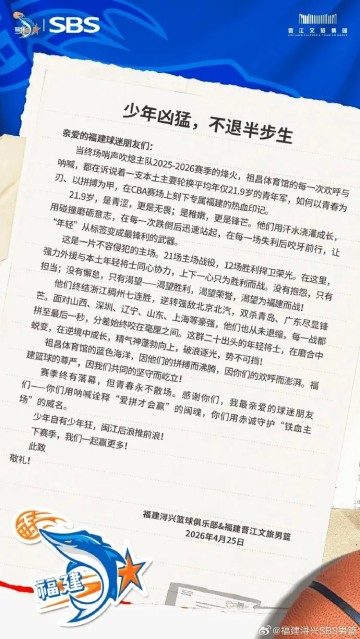 SBS
晋江文旅集团
少年凶猛，不退半步生
亲爱的福建球迷朋友们：
当终场哨声吹熄主队2025-2026赛季的烽火，祖昌体育馆的每一次欢呼与
呐喊，都在诉说着一支本土主要轮换平均年仅21.9岁的青年军，如何以青春为
刃、以拼搏为甲，在CBA赛场上刻下专属福建的热血印记。
21.9岁，是青涩，更是无畏；是稚嫩，更是锋芒。他们用汗水浇灌成长，
用碰撞磨砺意志，在每一次跌倒后迅速站起，在每一场失利后咬牙前行，让
“年轻”从标签变成最锋利的武器。
这是一片不容侵犯的主场。21场主场战役，12场胜利捍卫荣光。在这里，
强力外援与本土年轻将士同心协力，上下一心只为胜利而战。没有抱怨，只有
担当；没有懈怠，只有渴望——渴望胜利，渴望荣誉，渴望为福建而战！
他们终结浙江稠州七连胜，逆转强敌北京北汽，双杀青岛、广东尽显锋
芒。面对山西、深圳、辽宁、山东、上海等豪强，他们也从未退缩，每一战都
拼至最后一秒，分差始终咬在毫厘之间。这群二十出头的年轻将士，在磨合中
蜕变，在逆境中成长，精气神蓬勃向上，破浪逐光，势不可挡！
祖昌体育馆的蓝色海洋，因他们的拼搏而沸腾，因你们的欢呼而澎湃。福
建篮球的尊严，因我们共同的坚守而屹立！
赛季终有落幕，但青春永不散场。感谢你们，我最亲爱的球迷朋友
们——你们用呐喊诠释“爱拼才会赢”的闽魂，你们用赤诚守护“铁血主
场”的威名。
少年自有少年狂，闽江后浪推前浪！
下赛季，我们一起赢更多！
此致
敬礼！
福建浔兴篮球俱乐部&福建晋江文旅男篮
2026年4月25日
福建
@福建浔兴SBS男篮